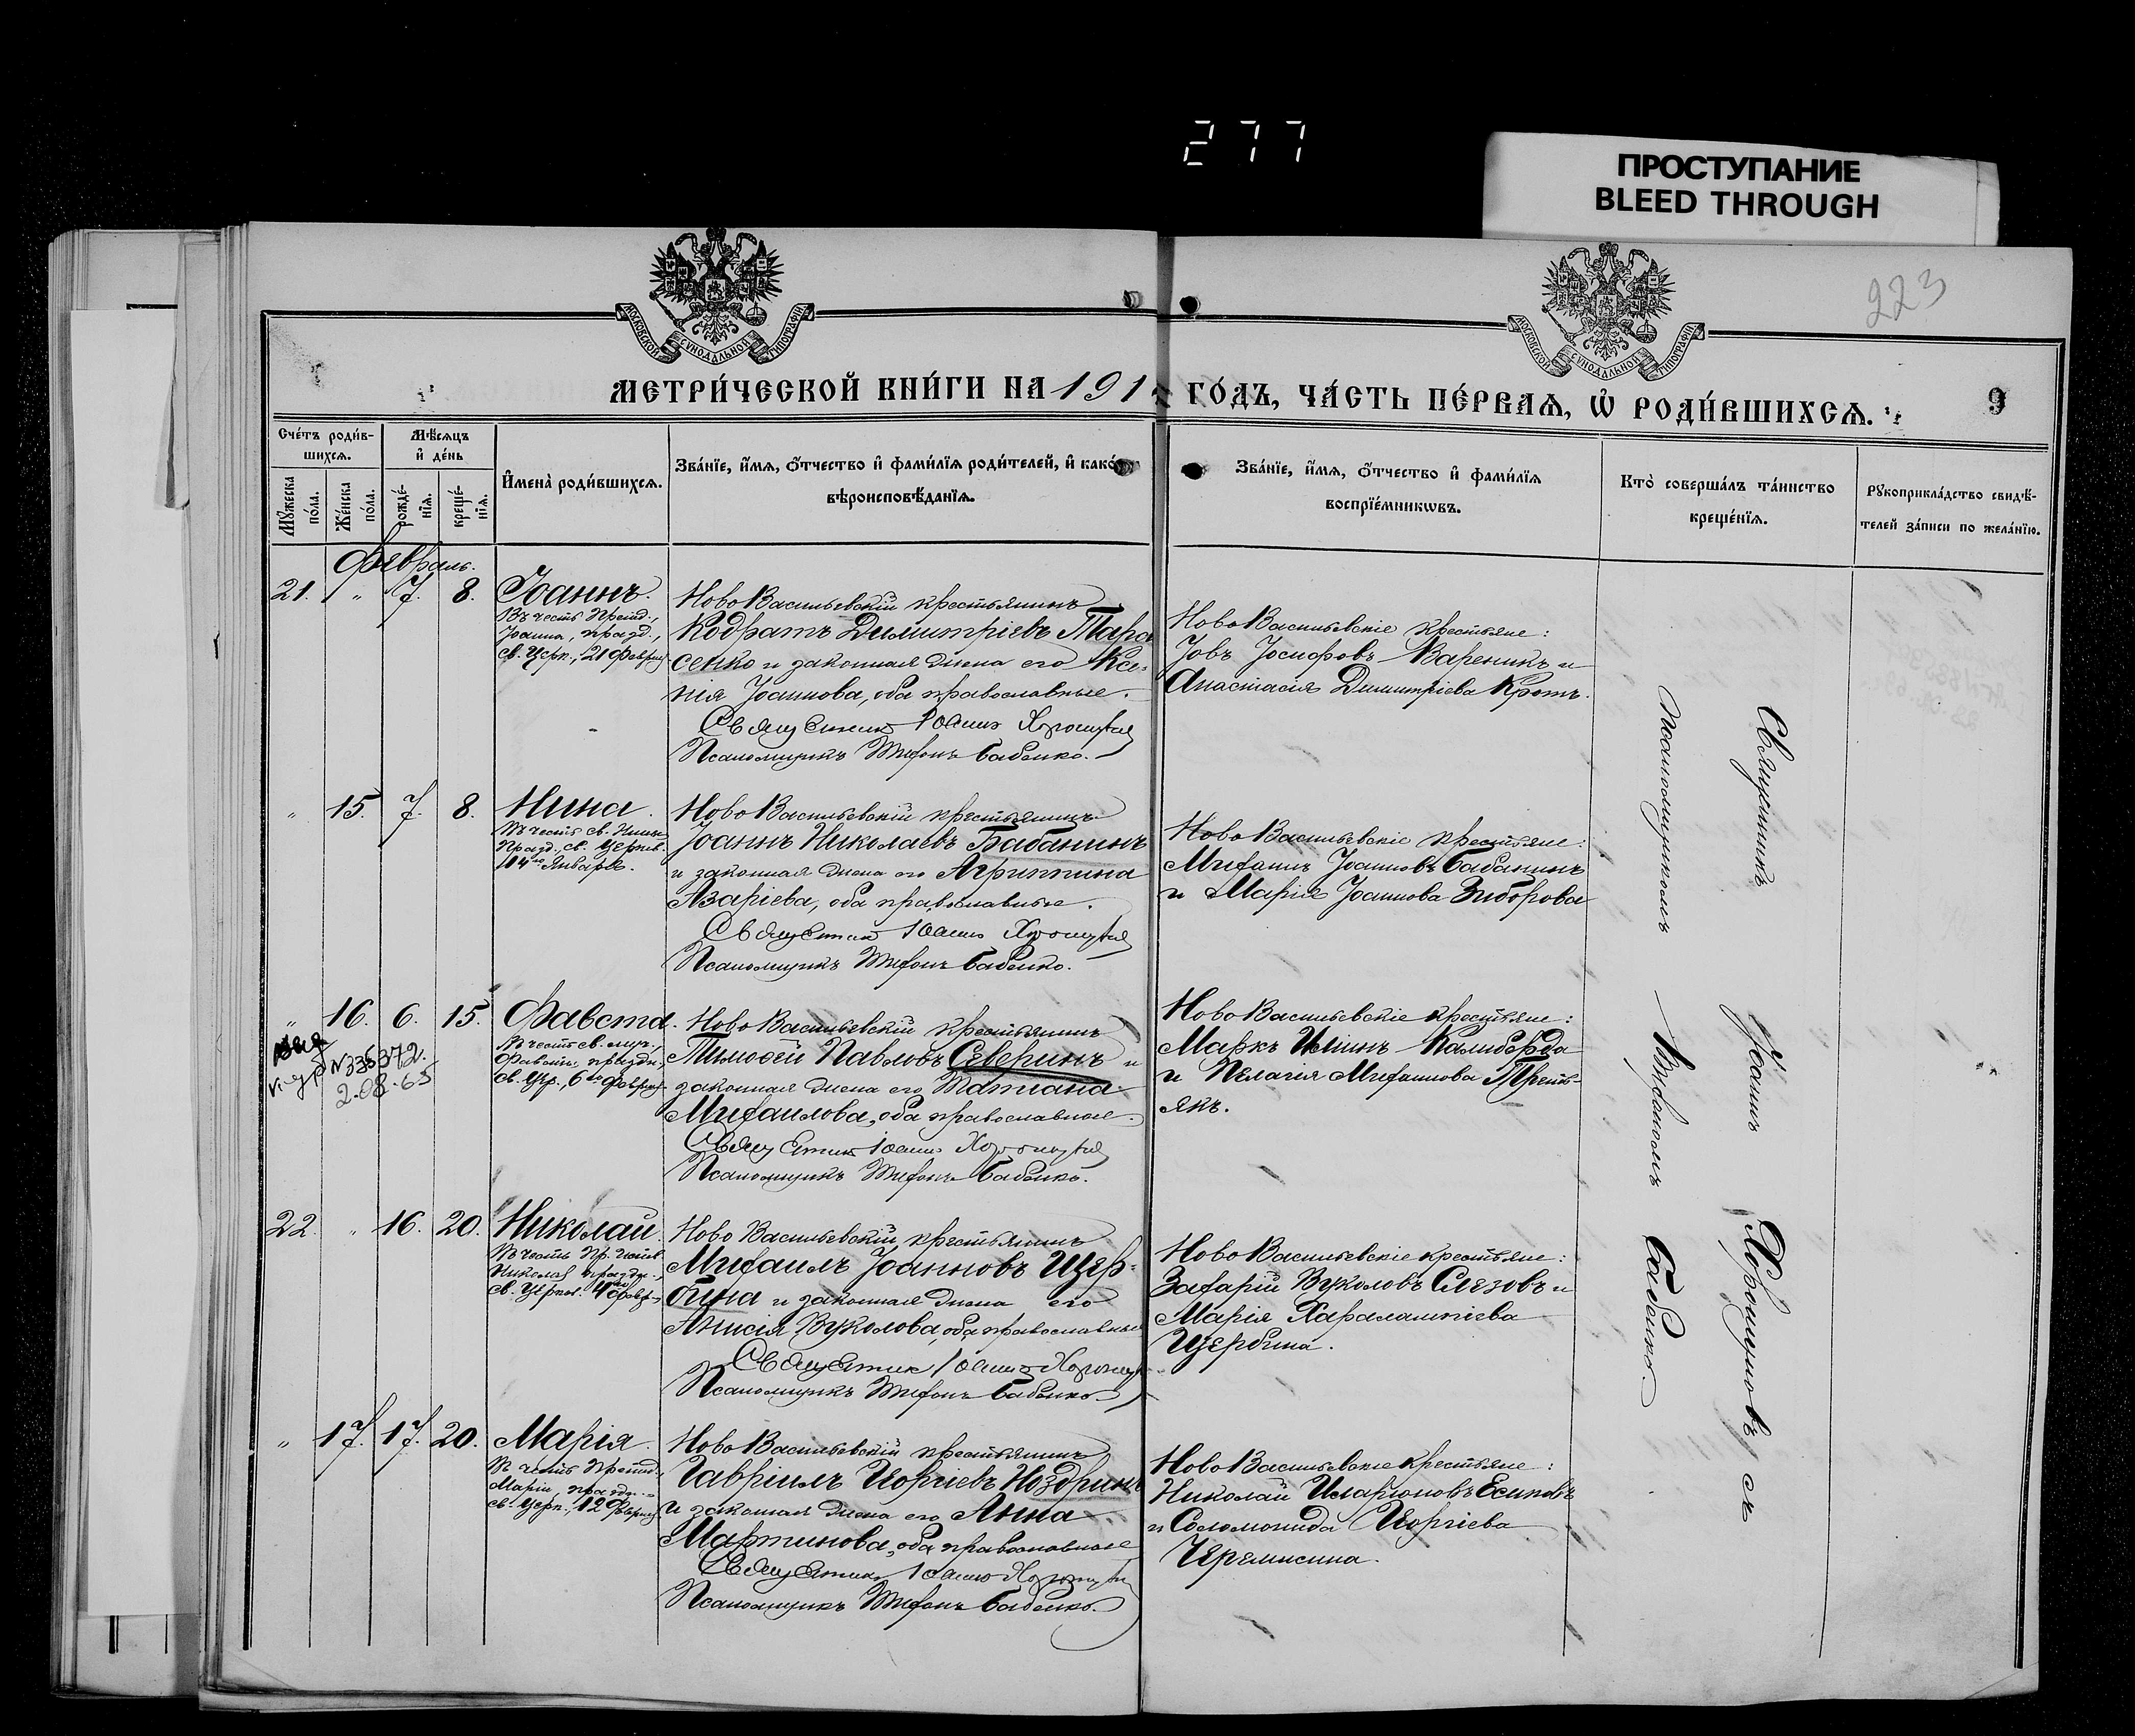 277
ПРОСТУПАНИЕ
BLEED THROUGH
223
МОСКОВСКОЙ СѴНОДАЛЬНОЙ ТИПОГРАФІИ
МОСКОВСКОЙ СѴНОДАЛЬНОЙ ТИПОГРАФІИ
МЕТРИ́ЧЕСКОЙ КНИ́ГИ НА 191
ГО́ДЪ, ЧА́СТЬ ПЕ́РВАѦ, Ѡ҆ РОДИ́ВШИХСѦ.
9
Сче́тъ роди́в-
шихсѧ.
Мꙋ́жеска по́ла.
Же́нска по́ла.
Мѣ́сѧцъ
и҆ де́нь
рожде́-нїѧ.
креще́-нїѧ.
И҆мена̀ роди́вшихсѧ.
Зва́нїе, и҆́мѧ, о҆́тчество и҆ фами́лїѧ роди́телей, и҆ како́
вѣроисповѣ́данїѧ.
Зва́нїе, и҆́мѧ, о҆́тчество и҆ фами́лїѧ
воспрїе́мникѡвъ.
Кто̀ соверша́лъ та́инство
креще́нїѧ.
Рꙋкоприкла́дство свидѣ́-
телей за́писи по жела́нїю.
Февраль.
21. " 7. 8. Іоаннъ.
Въ честь Препод.
Іоанна, празд.,
св. Церк., 21 Февраля
НовоВасильевскій крестьянинъ
Кодратъ Димитріевъ Тара
сенко и законная жена его Ксе-
нія Іоаннова, оба православные.
Священник Іоанн
Псаломщикъ Бабенко.
НовоВасильевскіе крестьяне:
Іовъ Іосифовъ Вареникъ и
Анастасія Димитріева Кротъ.
" 15. 7. 8. Нина.
Въ честь св. Нины
празд. св. Церков.
14го Января.
НовоВасильевскій крестьянинъ
Іоаннъ Николаевъ Бабанинъ
и законная жена его Агриппина
Азаріева, оба православные.
Священник Іоанн
Псаломщикъ Бабенко.
НовоВасильевскіе крестьяне:
Михаилъ Іоанновъ Бабанинъ
и Марія Іоаннова Зиборова
" 16. 6. 15. Фавста.
N335372.
2.08.65
Въ честь св. муч.
Фавсты праздн.,
св. Цер., 6го Февраля
НовоВасильевскій крестьянинъ
Тимофей Павловъ Северинъ и
законная жена его Татіана
Михаилова, оба православные.
Священник Іоанн
Псаломщикъ Бабенко.
НовоВасильевскіе крестьяне:
Маркъ Ильинъ Калиберда
и Пелагія Михаилова Треть-
якъ.
22. " 16. 20. Николай.
Николая праздн.,
св. Церков. 4 Февр.
НовоВасильевскій крестьянинъ
Михаилъ Іоанновъ Щер-
бина и законная жена его
Анисія Вуколова, оба православные
Священник Іоанн
Псаломщикъ Бабенко.
НовоВасильевскіе крестьяне:
Захарій Вуколовъ Слезовъ и
Марія Харалампіева
Щербина.
" 17. 17. 20. Марія.
Въ честь Препод.
Маріи, праздн.
св. Церк., 12 Февраля
НовоВасильевскій крестьянинъ
Гавріилъ Георгіевъ Ноздринъ
и законная жена его Анна
Мартинова, оба православные
Священник Іоанн
Псаломщикъ Бабенко.
НовоВасильевскіе крестьяне:
Николай Иларіоновъ Есиповъ
и Соломонида Георгіева
Черемисина.
Священникъ Іоаннъ Хорошуновъ съ
псаломщикомъ Бабенко.